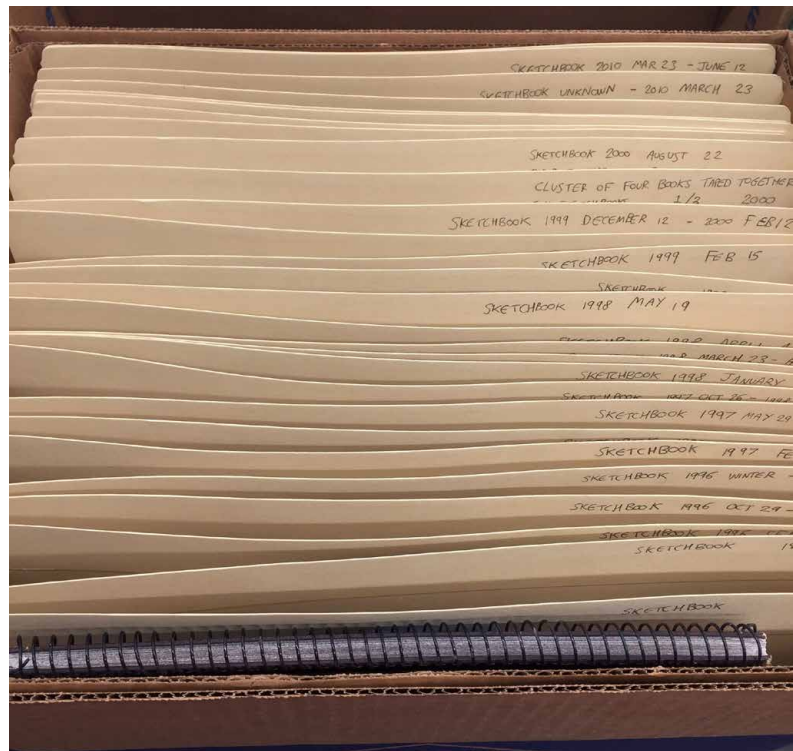 SKETCHBOOK 2010 MAR 23 - JUNE 12
SKETCHBOOK UNKNOWN - 2010 MARCH 23
SKETCHBOOK 2000 AUGUST 22
CLUSTER OF FOUR BOOKS TAPED TOGETHER
1/2 2000
SKETCHBOOK 1999 DECEMBER 12 - 2000 FEB 12
SKETCHBOOK 1999 FEB 15
SKETCHBOOK
SKETCHBOOK 1998 MAY 19
SKETCHBOOK 1998 APRIL
MARCH 23 -
SKETCHBOOK 1998 JANUARY
SKETCHBOOK 1997 OCT 26 - 1998
SKETCHBOOK 1997 MAY 29
SKETCHBOOK 1997 FE
SKETCHBOOK 1996 WINTER -
SKETCHBOOK 1996 OCT 29 -
SKETCHBOOK 1996
SKETCHBOOK 19
SKETCHBOOK